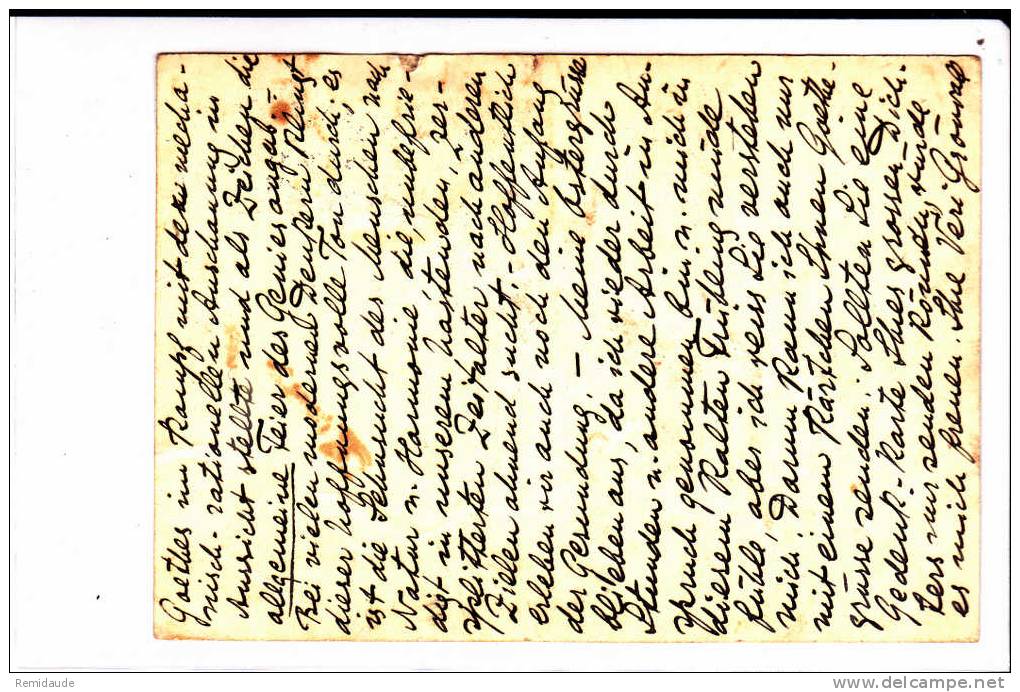 Goethes im Kampf mit der mecha-
nisch-rationellen Anschauung in
Aussicht stellte und als Zeichen die
allgemeine Feier des Genies angab –
Bei vielen modernen Denkern klingt
dieser hoffnungsvolle Ton durch, es
ist die Sehnsucht des Menschen nach
Natur u. Harmonie, die, unbefrie-
digt in unserem hastenden, zer-
splitterten Zeitalter nach anderen
Zielen ahnend sucht. – Hoffentlich
erleben wir auch noch den Anfang
der Gesundung. – Meine Ostergrüsse
blieben aus, da ich wieder durch
Stunden u. andere Arbeit in An-
spruch genommen bin u. mich in
diesem kalten Frühling müde
fühle, aber ich weiss Sie verstehen
mich. Darum kann ich auch nur
mit einem Kärtchen Ihnen Goethe-
grüsse senden. Sollten Sie eine
Gedenk-Karte Ihres grossen Dich-
ters mir senden können, würde
es mich freuen. Ihre Veri
Remidaude
delcampe.net